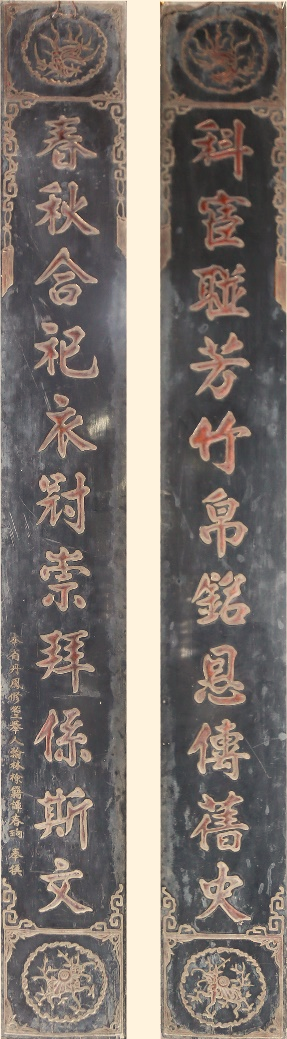 科宦聯芳竹帛銘恩傳舊史
春秋合祀衣冠崇拜係斯文
奉撰